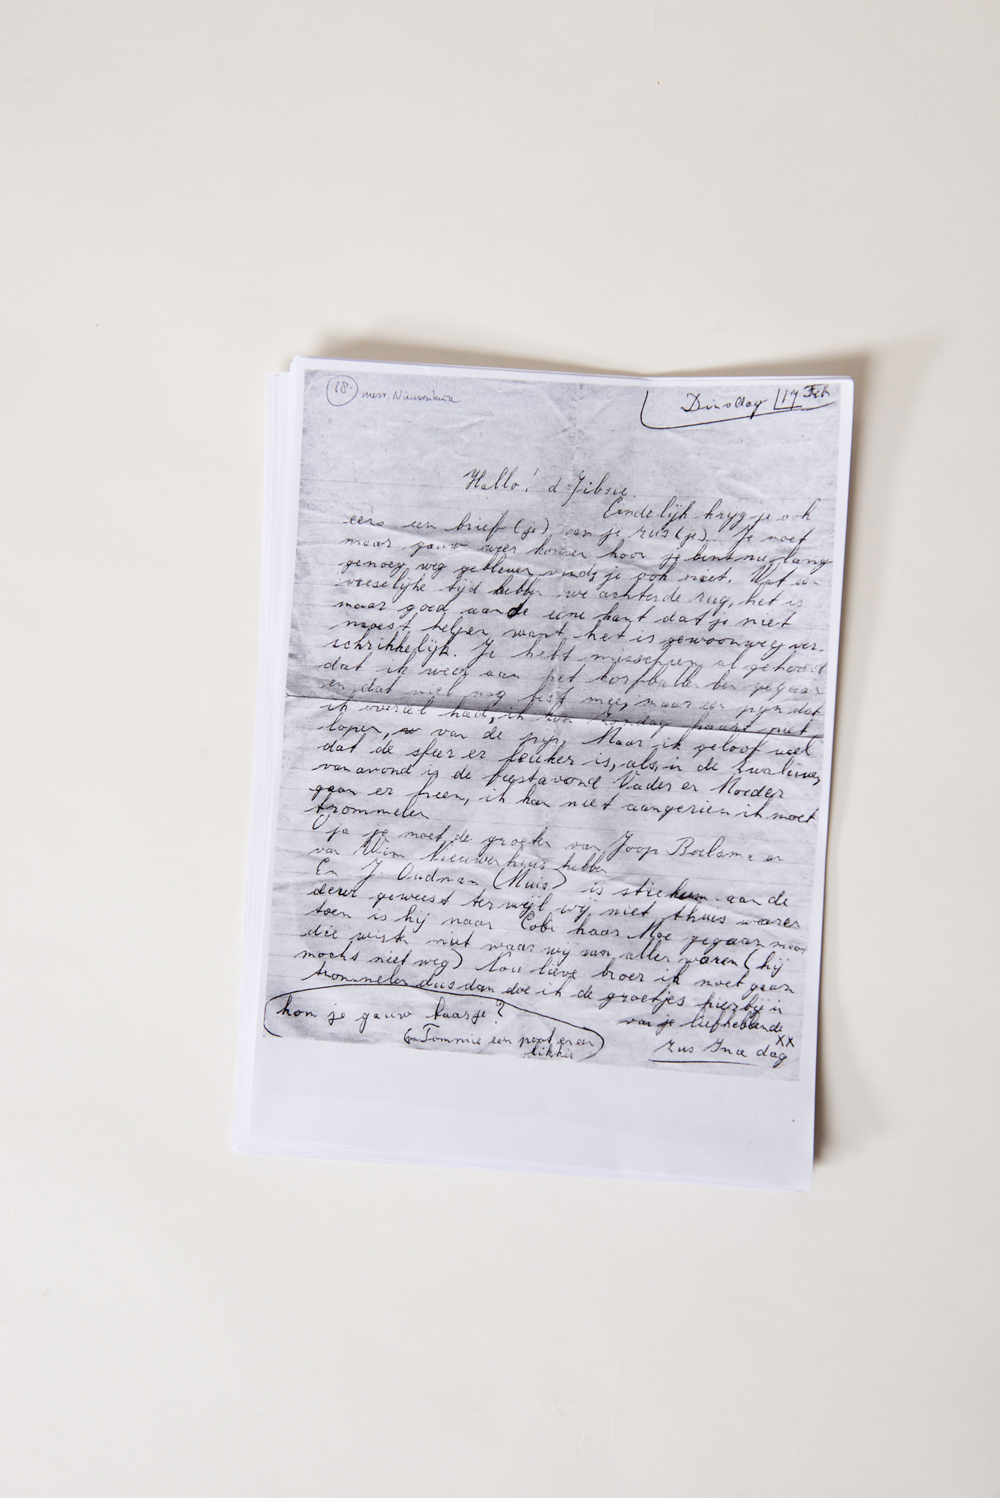 18. mevr. Nieuwenhuis
Dinsdag 17 Feb
Hallo! d Jibsie.
Eindelijk kryg je ook
eens een brief (je) van je zus (je). Je moet
maar gauw weer komen hoor je bent nu lang
genoeg weg gebleven vindt je ook niet. Wat een
vreselijke tijd hebben we achter de rug, het is
maar goed aan de eene kant dat je niet
moest helpen, want het is gewoonweg ver-
schrikkelijk. Je hebt misschien al gehoord
dat ik weer aan het korfballen ben gegaan
en dat viel nog best mee, maar een pijn dat
ik overal had, ik kon Zondag haast niet
lopen, van de pijn. Maar ik geloof wel
dat de sfeer er leuker is, als in de Zwaluwen
vanavond is de feestavond Vader en Moeder
gaan er heen, ik kan niet aangezien ik moet
trommelen
O ja je moet de groeten van Joop Boelsma en
van Wim Nieuwenhuis hebben
En J Oudman (Muis) is stiekum aan de
deur geweest terwijl wij niet thuis waren
toen is hij naar Cobi haar Moe gegaan maar
die wist niet waar wij van allen waren (hij
mocht niet weg) Nou lieve broer ik moet gaan
trommelen dus dan doe ik de groetjes hierbij in
van je liefhebbende
xx
zus Ina dag
kom je gauw baasje?
Van Tommie een poot en een
likkie